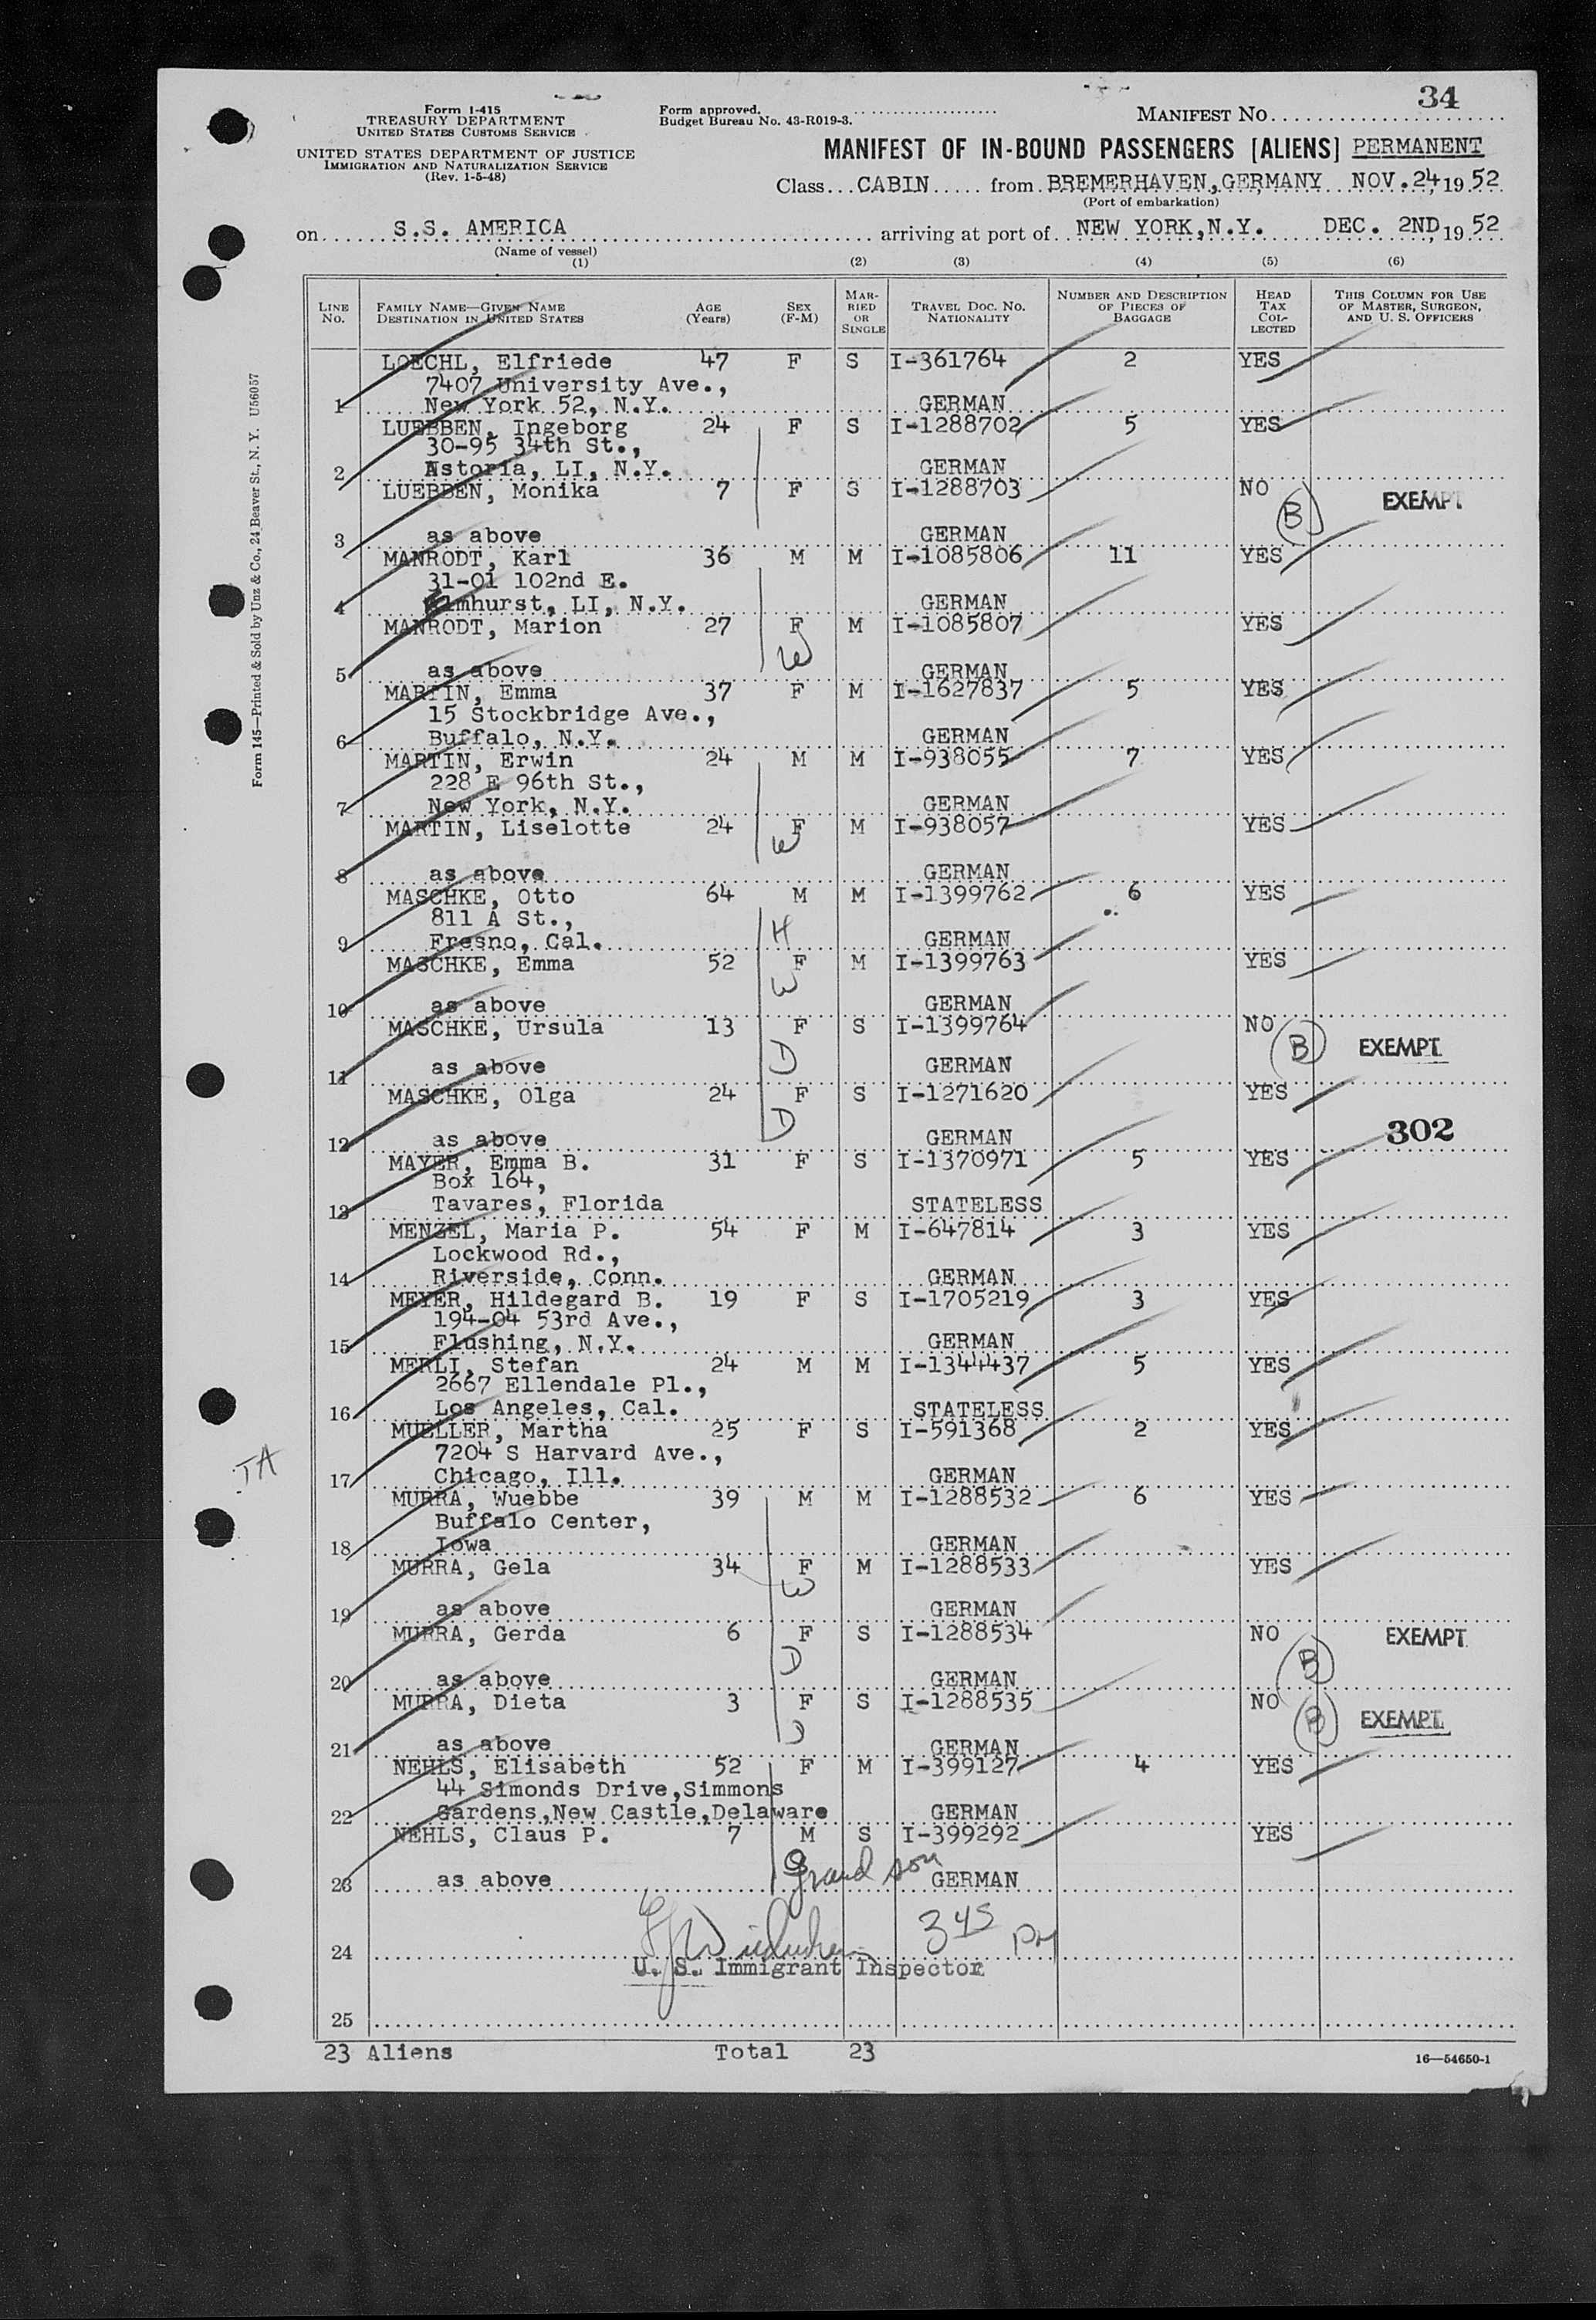 34
Form I-415
TREASURY DEPARTMENT
UNITED STATES CUSTOMS SERVICE
UNITED STATES DEPARTMENT OF JUSTICE
IMMIGRATION AND NATURALIZATION SERVICE
(Rev. 1-5-48)
Form approved.
Budget Bureau No. 43-R019-3.
MANIFEST NO.
MANIFEST OF IN-BOUND PASSENGERS [ALIENS] PERMANENT
Class CABIN from BREMERHAVEN, GERMANY NOV. 24, 1952
(Port of embarkation)
on S.S. AMERICA arriving at port of NEW YORK, N.Y. DEC. 2ND, 1952
(Name of vessel)
(1) (2) (3) (4) (5) (6)
LINE No. FAMILY NAME—GIVEN NAME DESTINATION IN UNITED STATES AGE (Years) SEX (F-M) MARRIED OR SINGLE TRAVEL DOC. NO. NATIONALITY NUMBER AND DESCRIPTION OF PIECES OF BAGGAGE HEAD TAX COLLECTED THIS COLUMN FOR USE OF MASTER, SURGEON, AND U. S. OFFICERS
LOECHL, Elfriede 47 F S I-361764 2 YES
7407 University Ave.,
1 New York 52, N.Y. GERMAN
LUEBBEN, Ingeborg 24 F S I-1288702 5 YES
30-95 34th St.,
2 Astoria, LI, N.Y. GERMAN
LUEBBEN, Monika 7 F S I-1288703 NO B EXEMPT
3 as above GERMAN
MANRODT, Karl 36 M M I-1085806 11 YES
31-01 102nd E.
4 Elmhurst, LI, N.Y. GERMAN
MANRODT, Marion 27 F M I-1085807 YES
W
5 as above GERMAN
MARTIN, Emma 37 F M I-1627837 5 YES
15 Stockbridge Ave.,
6 Buffalo, N.Y. GERMAN
MARTIN, Erwin 24 M M I-938055 7 YES
228 E 96th St.,
7 New York, N.Y. GERMAN
MARTIN, Liselotte 24 F M I-938057 YES
W
8 as above GERMAN
MASCHKE, Otto 64 M M I-1399762 6 YES
811 A St., H
9 Fresno, Cal. GERMAN
MASCHKE, Emma 52 F M I-1399763 YES
W
10 as above GERMAN
MASCHKE, Ursula 13 F S I-1399764 NO B EXEMPT
D
11 as above GERMAN
MASCHKE, Olga 24 F S I-1271620 YES
D 302
12 as above GERMAN
MAYER, Emma B. 31 F S I-1370971 5 YES
Box 164,
13 Tavares, Florida STATELESS
MENZEL, Maria P. 54 F M I-647814 3 YES
Lockwood Rd.,
14 Riverside, Conn. GERMAN
MEYER, Hildegard B. 19 F S I-1705219 3 YES
194-04 53rd Ave.,
15 Flushing, N.Y. GERMAN
MERLI, Stefan 24 M M I-1344437 5 YES
2667 Ellendale Pl.,
16 Los Angeles, Cal. STATELESS
MUELLER, Martha 25 F S I-591368 2 YES
7204 S Harvard Ave.,
TA
17 Chicago, Ill. GERMAN
MURRA, Wuebbe 39 M M I-1288532 6 YES
Buffalo Center,
18 Iowa GERMAN
MURRA, Gela 34 F M I-1288533 YES
W
19 as above GERMAN
MURRA, Gerda 6 F S I-1288534 NO B EXEMPT
D
20 as above GERMAN
MURRA, Dieta 3 F S I-1288535 NO B EXEMPT
D
21 as above GERMAN
NEHLS, Elisabeth 52 F M I-399127 4 YES
44 Simonds Drive,Simmons
22 Gardens,New Castle,Delaware GERMAN
NEHLS, Claus P. 7 M S I-399292 YES
Grand son
23 as above GERMAN
3 45 PM
24
U. S. Immigrant Inspector
25
23 Aliens Total 23
16—54650-1
Form 145—Printed & Sold by Unz & Co., 24 Beaver St., N. Y. U56057